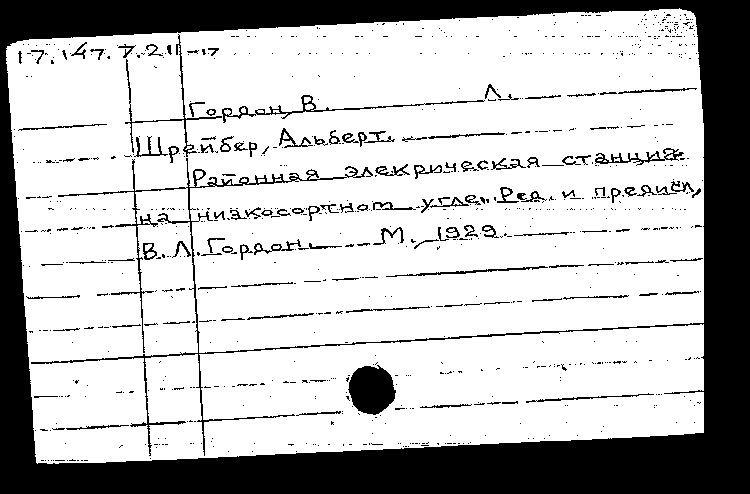 17.147.7.211-17
Гордон, В. Л.
Шрейбер, Альберт.
Районная элекрическая станция
на низкосортном угле. Ред. и предисл,
В. Л. Гордон. М., 1929.